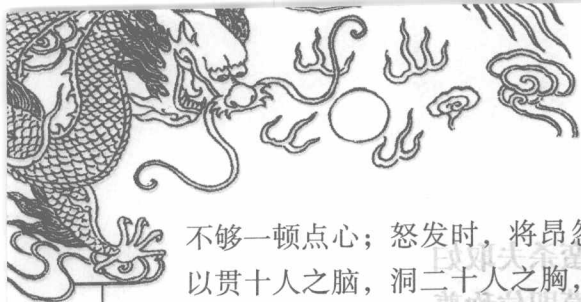 不够一顿点心；怒发时，将昂
以贯十人之脑，洞二十人之胸，